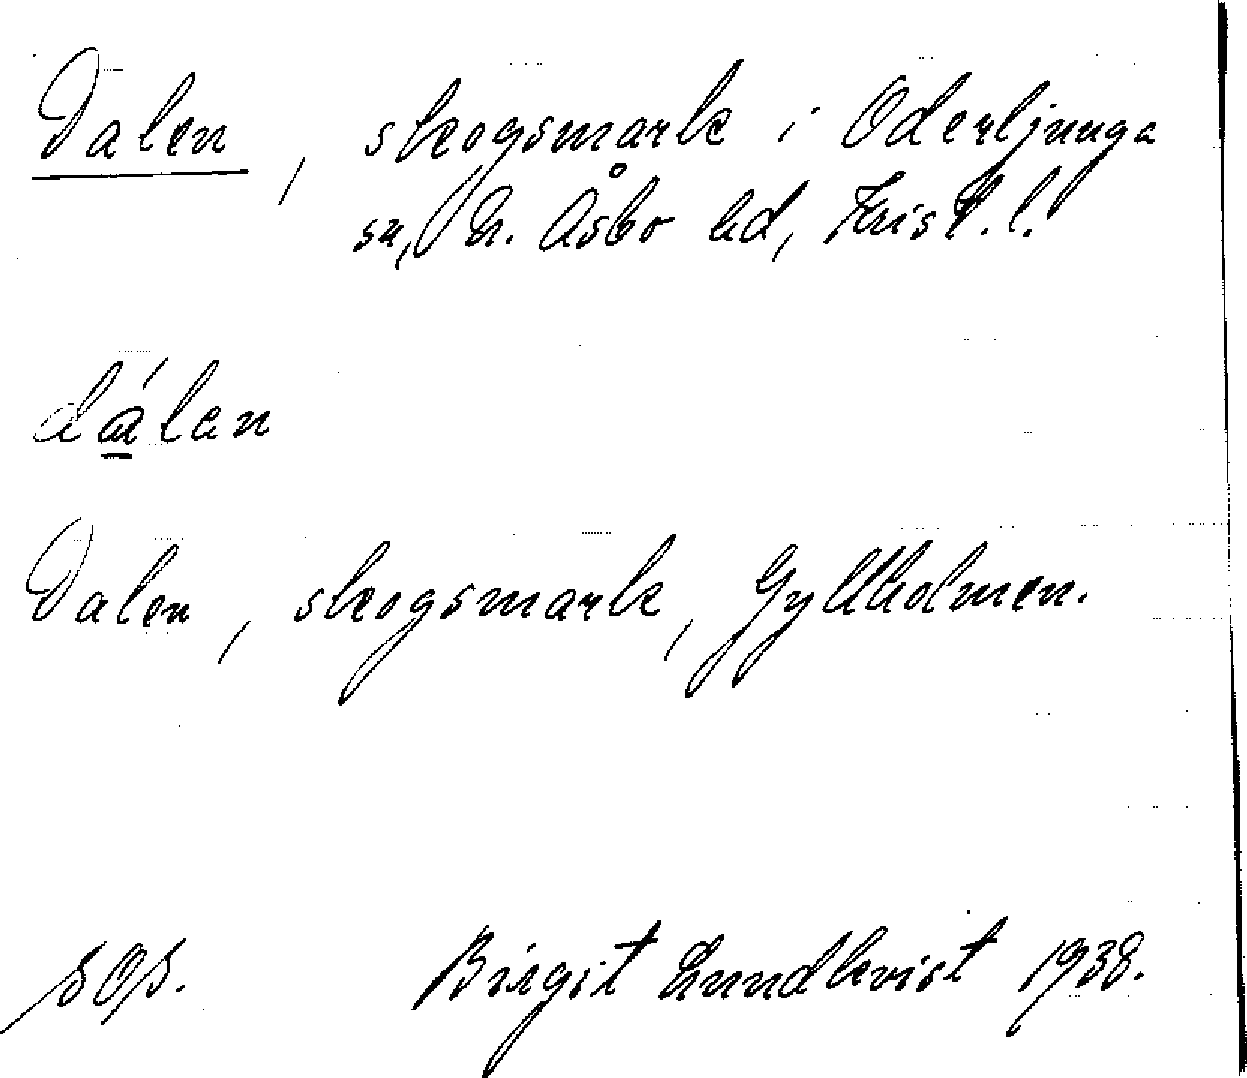 Dalen, skogsmark i Oderljunga
sn, N. Åsbo hd, Krist. l.
dálan
Dalen, skogsmark, Gyllholmen.
sOs. Birgit Lundkvist 1938.